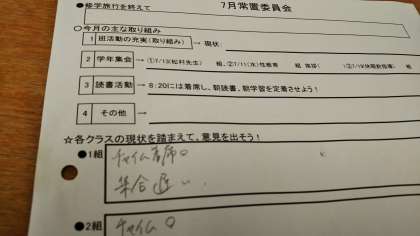 ●修学旅行を終えて
7月常置委員会
○今月の主な取り組み
1 班活動の充実(取り組み) → 現状
2 学年集会 → ①7/13(松村先生) 組、②7/11(水)性教育 組 挨拶( )
3 読書活動 → 8:20には着席し、朝読書、朝学習を定着させよう!
4 その他 →
☆各クラスの現状を踏まえて、意見を出そう!
●1組 チャイム着席○
集合遅い、
●2組 チャイム○